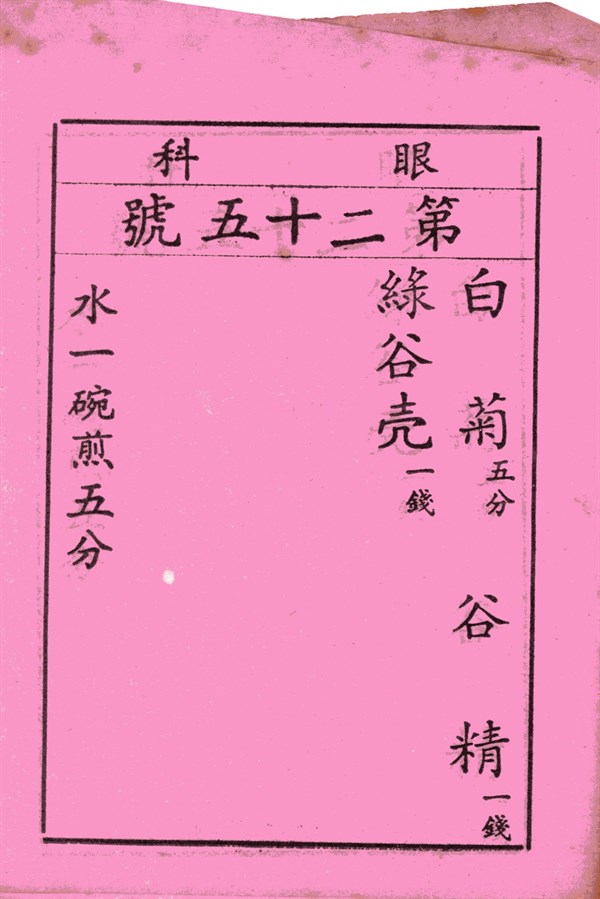 眼科
第二十五號
白菊五分 谷精一錢
綠谷壳一錢
水一碗煎五分